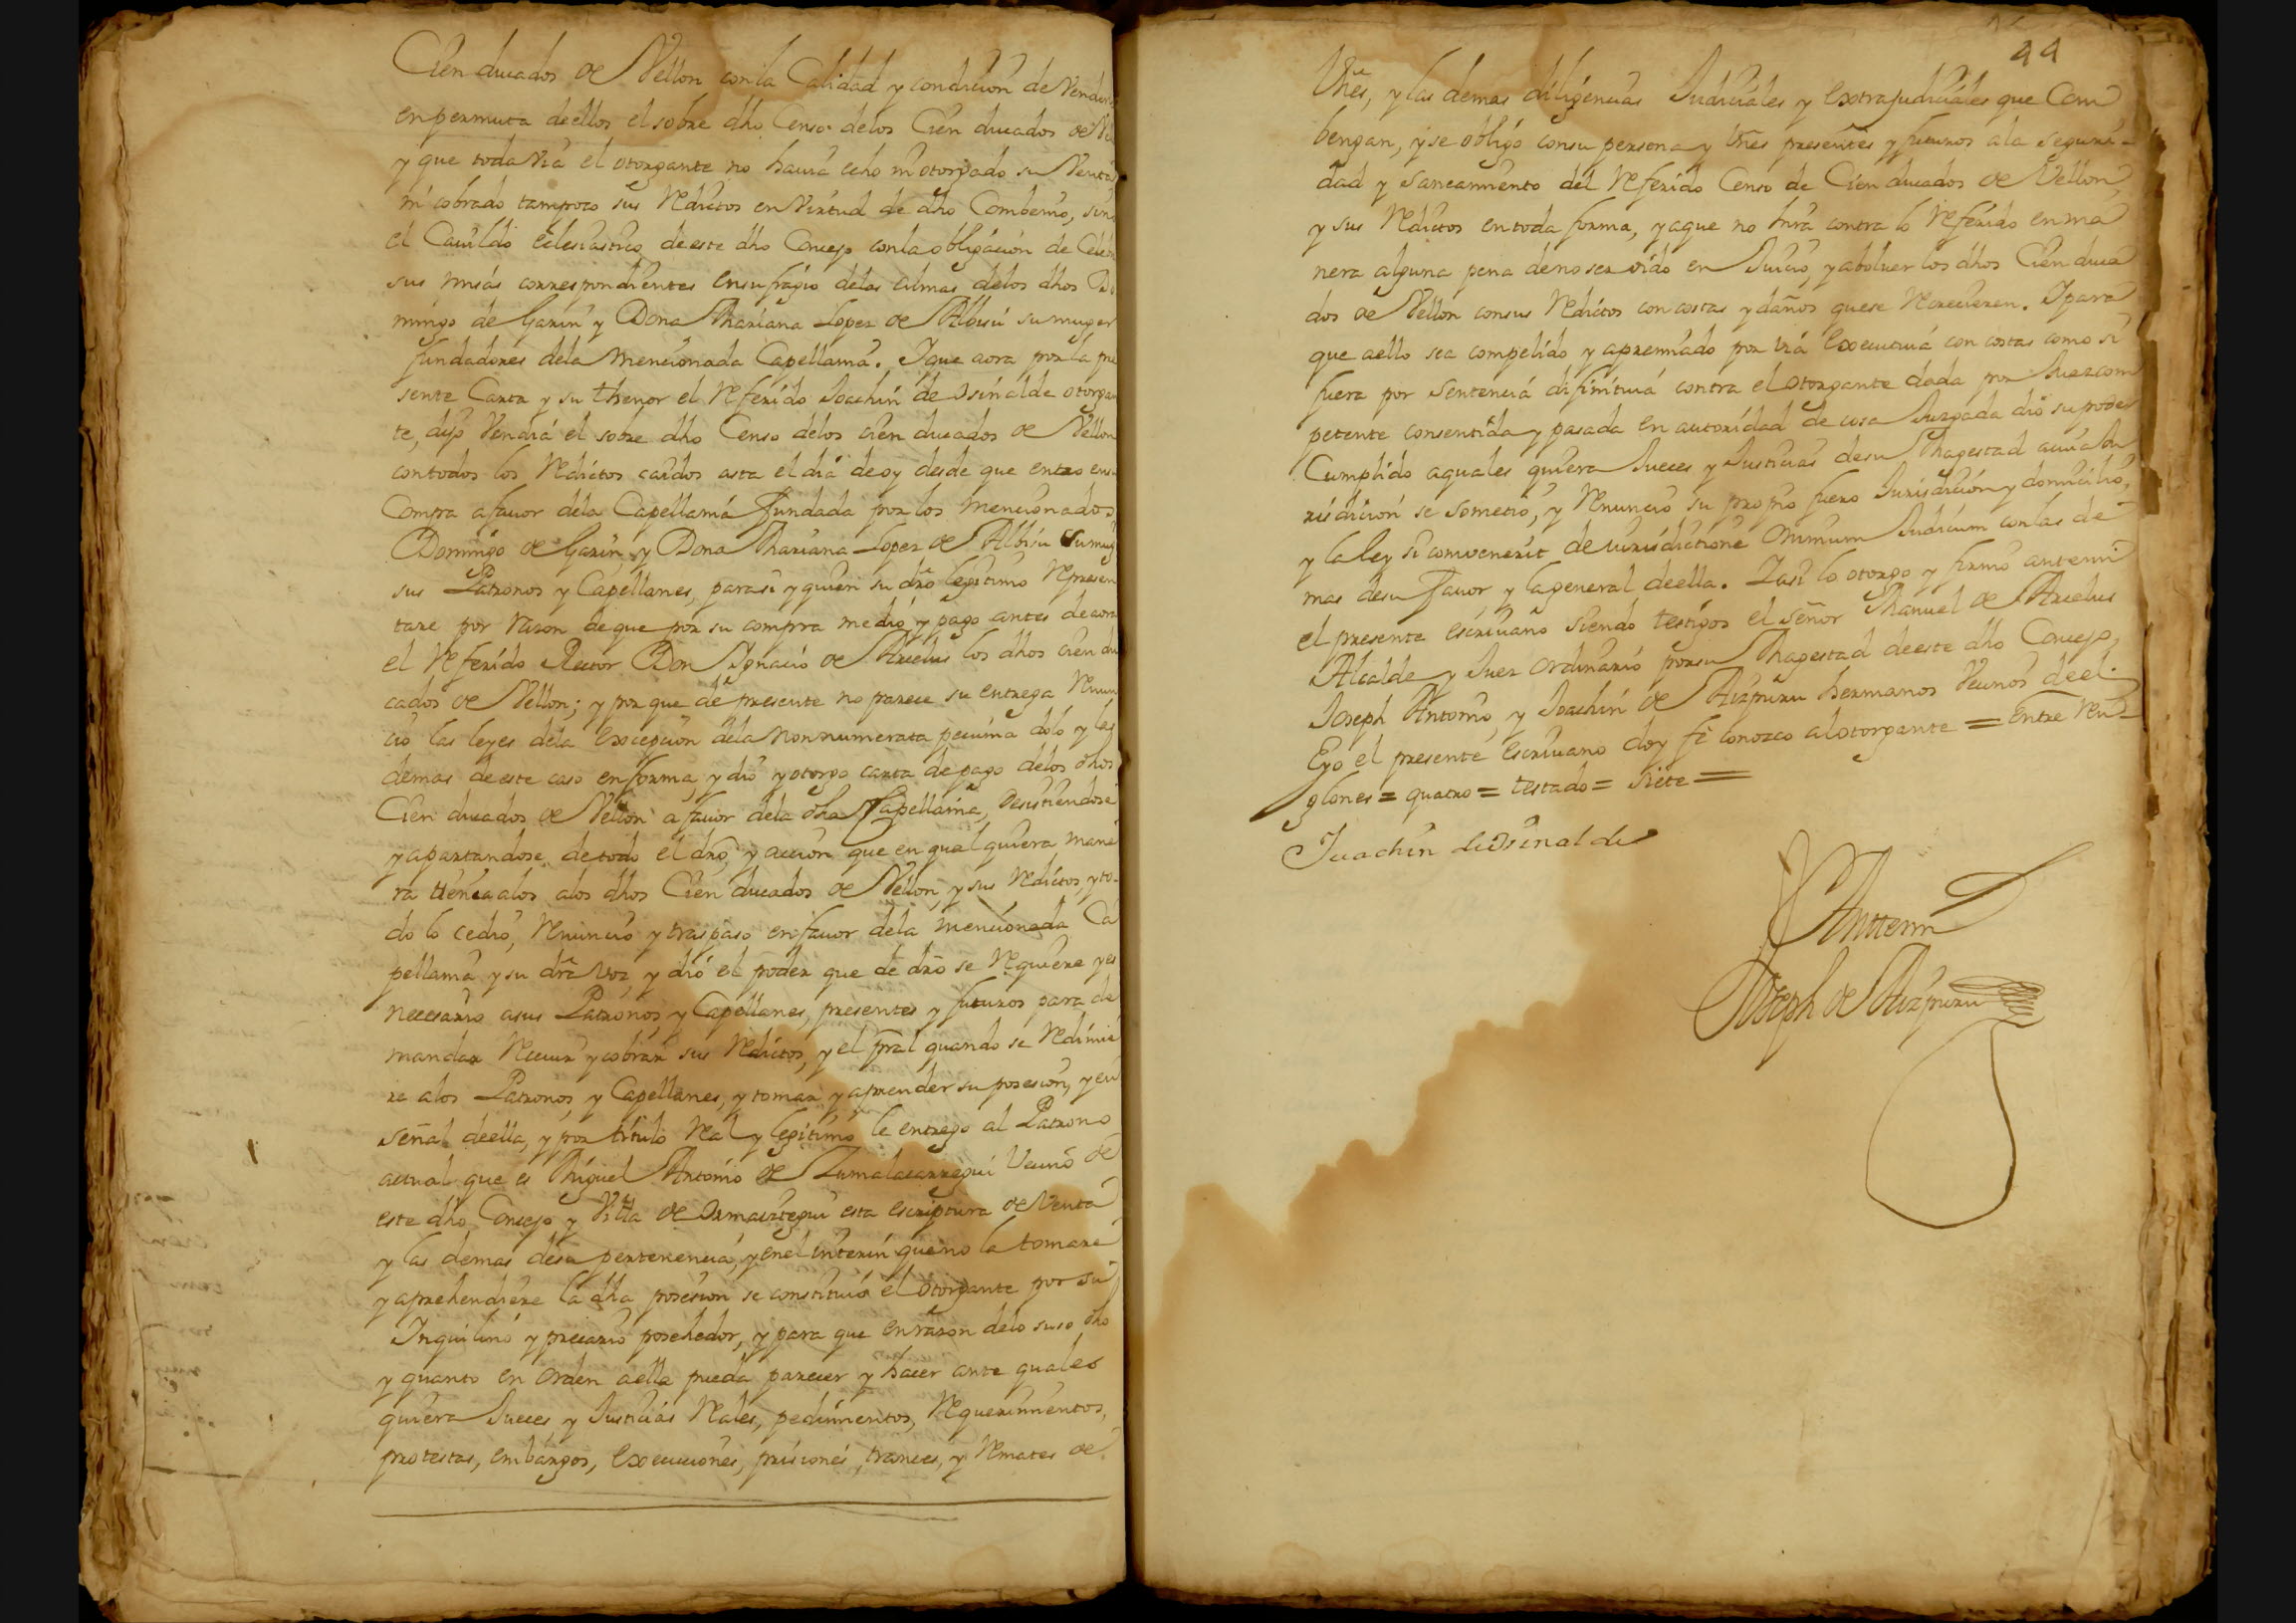 Cien ducados de Vellon con la Calidad y condicion de Vender
en permuta de ellos el sobre dho Censo de los Cien ducados de
y que toda via el otorgante no havia echo ni otorgado su Venta
ni cobrado tampoco sus Reditos en Virtud de dho Combenio, sino
el Cavildo eclesiastico de este dho Concejo con la obligacion de
sus misas correspondientes en sufragio de las almas de los dhos Do
mingo de Garin y Dona Mariana Lopez de Albisu su muger
fundadores de la mencionada Capellania. Y que aora por la pre
sente Carta y su thenor el Referido Joachin de Osinalde otorgan
te, dijo Vendia el sobre dho Censo de los cien ducados de Vellon
con todos los Reditos caidos asta el dia de oy desde que entro en su
Compra a favor de la Capellania fundada por los mencionados
Domingo de Garin, y Dona Mariana Lopez de Albisu su mug
sus Patronos y Capellanes, para si y quien su dro legitimo Represen
tare por razon de que por su compra medio y pago antes de aora
el Referido Rector Don Ignacio de Arcelus los dhos cien du
cados de Vellon; y por que de presente no parece su entrega Renun
cio las leyes de la excepcion de la non numerata pecunia dolo y las
demas de este caso en forma, y dio y otorgo carta de pago de los dhos
Cien ducados de Vellon a favor de la dha Capellania, desistiendose
y apartandose de todo el dro, y accion que en qual quiera mane
ra tienea los alos dhos Cien ducados de Vellon, y sus Reditos, y to-
do lo cedio, Renuncio y traspaso en favor de la mencionada Ca
pellania y su dra voz, y dio el poder que de dro se Requiere y es
necesario a sus Patronos y Capellanes, presentes y futuros para de
mandar Recivir y cobrar sus Reditos, y el pral quando se Redimie
re a los Patronos y Capellanes, y tomar y aprender su posesion, y en
señal de ella, y por titulo Real y legitimo le entrego al Patrono
actual que es Miguel Antonio de Zumalacarregui Vecino de
este dho Concejo y Villa de Ormaiztegui esta escriptura de Venta
y las demas de su pertenencia, y en el interin que no la tomare
y aprehendiere la dha posesion se constituio el otorgante por su
Inquilino y precario posehedor, y para que en razon de lo suso dho
y quanto en orden a ella pueda parecer y hacer ante quales
quiera Jueces, y Justicias Reales, pedimentos, Requerimentos,
protestas, embargos, execuciones, prisiones, trances, y Remates de
44
Vñes, y las demas diligencias Judiciales y extrajudiciales que Com
bengan, y se obligó con su persona y vñes presentes y futuros a la seguri-
dad y saneamiento del Referido Censo de Cien ducados de Vellon,
y sus Reditos en toda forma, y a que no hira contra lo Referido en ma
nera alguna pena de no ser oido en Juicio, y abolver los dhos Cien duca
dos de Vellon con sus Reditos con costas y daños que se Recrecieren. Y para
que a ello sea compelido y apremiado por via executiva con costas como si
fuera por Sentencia difinitiva contra el otorgante dada por Juez com
petente consentida y pasada en autoridad de cosa Juzgada dio su poder
Cumplido a quales quiera Jueces y Justicias de su Magestad a cuia Ju
risdicion se sometio, y Renuncio su propio fuero Jurisdicion y domicilio,
y la ley si convenerit de iurisdictione omnium Judicum con las de
mas de su favor, y la general de ella. Y asi lo otorgo y firmo ante mi
el presente escrivano siendo testigos el señor Manuel de Arcelus
Alcalde y Juez ordinario por su Magestad de este dho Concejo,
Joseph Antonio, y Joachin de Aizpuru hermanos Vecinos de el.
E yo el presente escrivano doy fe conozco al otorgante = Entre Ren-
glones = quatro = testado = siete =
Juachin de Osinalde
Ante mi
Joseph de Aizpuru